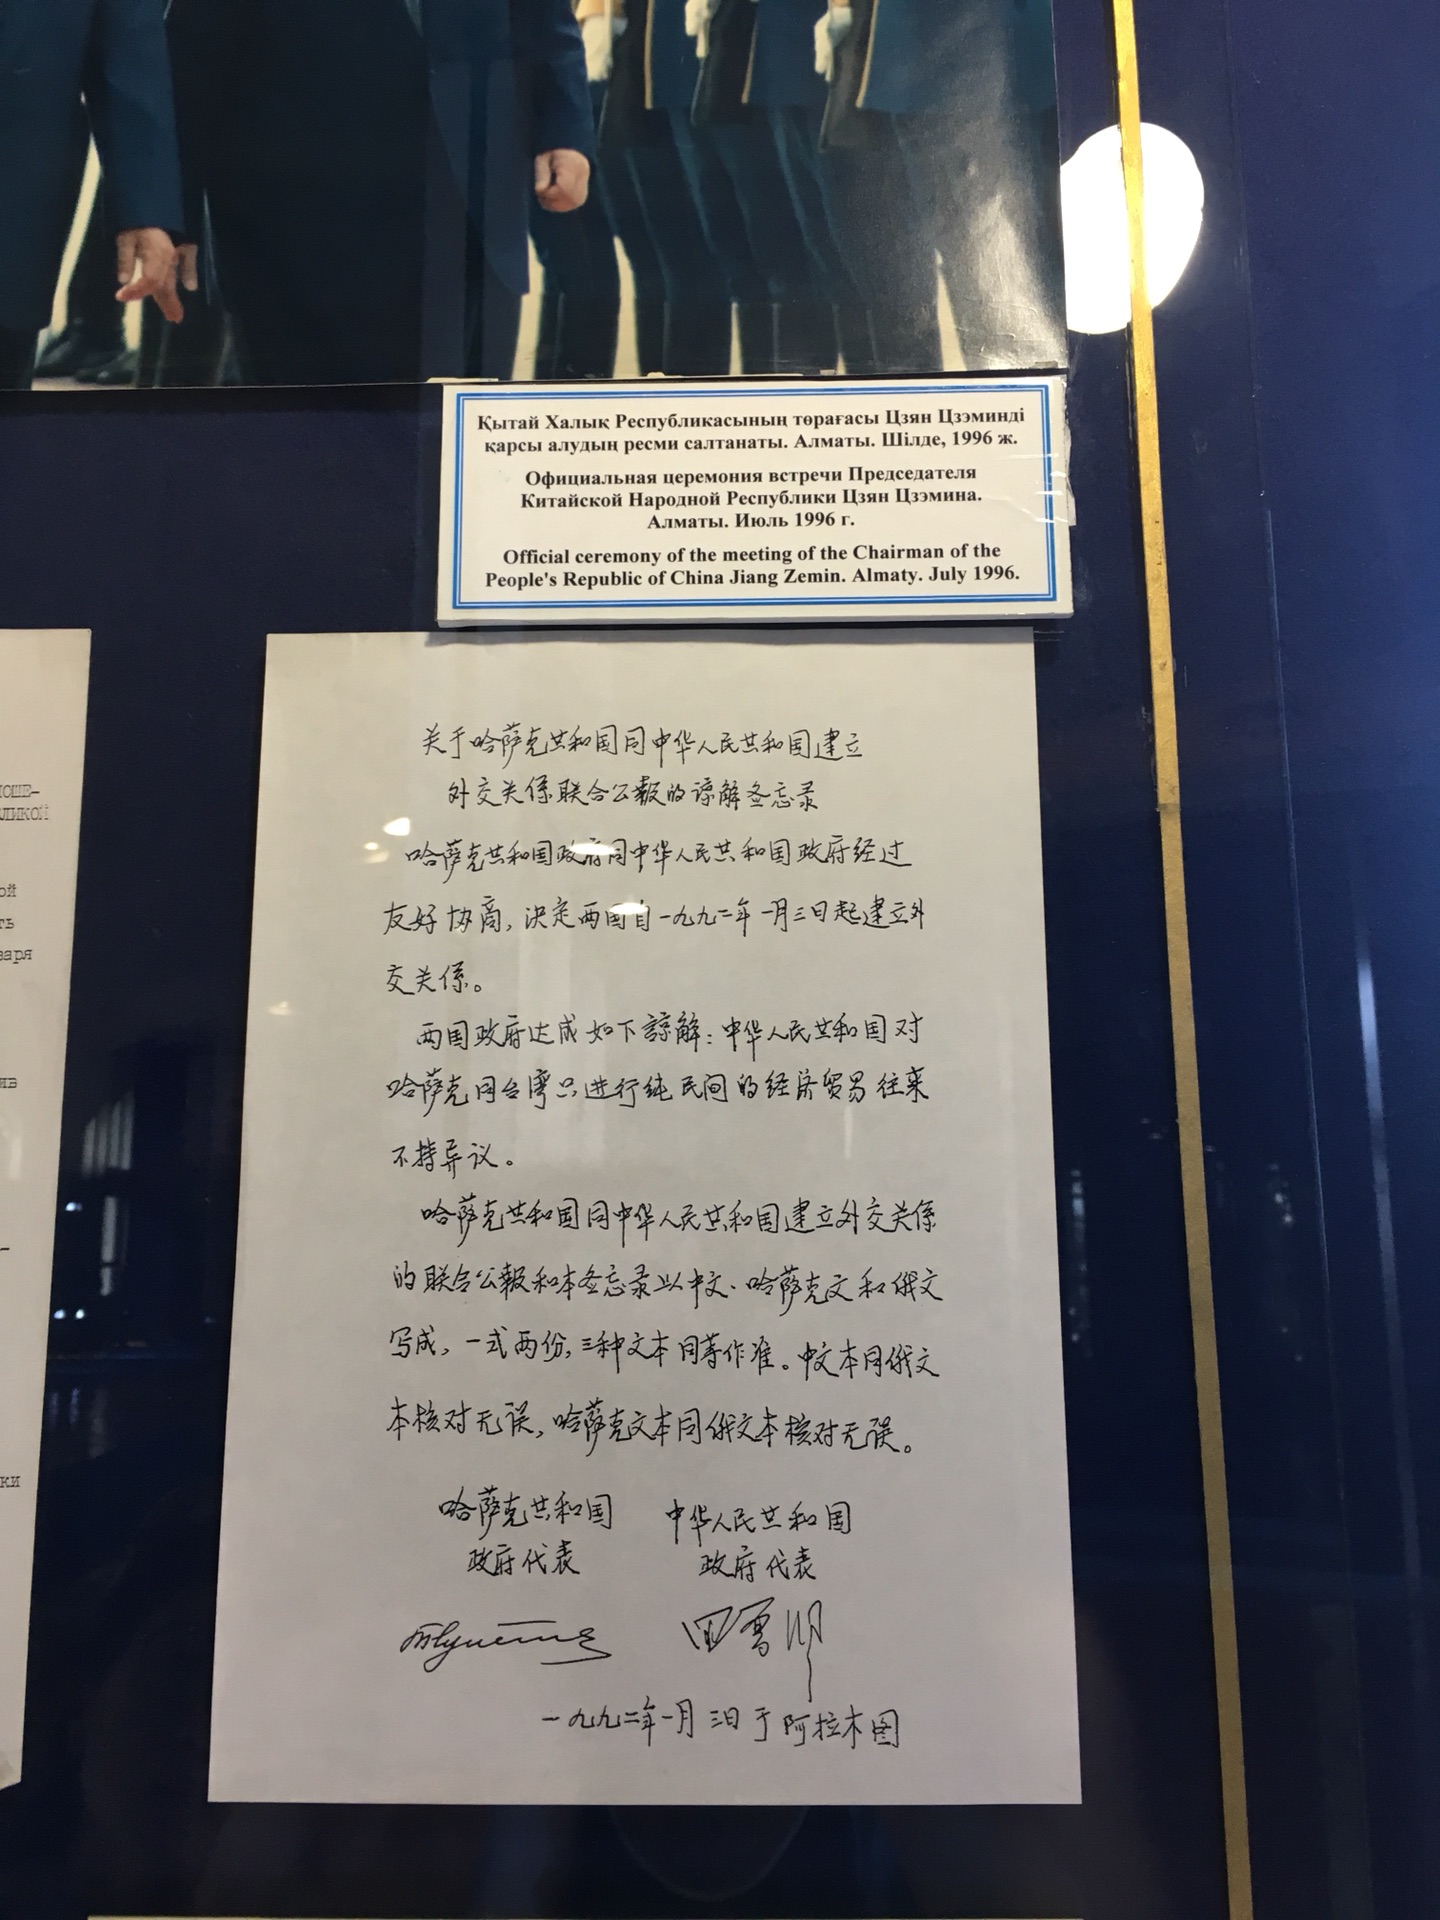 Қытай Халық Республикасының төрағасы Цзян Цзэминді
қарсы алудың ресми салтанаты. Алматы. Шілде, 1996 ж.
Официальная церемония встречи Председателя
Китайской Народной Республики Цзян Цзэмина.
Алматы. Июль 1996 г.
Official ceremony of the meeting of the Chairman of the
People's Republic of China Jiang Zemin. Almaty. July 1996.
关于哈萨克共和国同中华人民共和国建立
外交关係联合公報的谅解备忘录
哈萨克共和国政府同中华人民共和国政府经过
友好协商，决定两国自一九九二年一月三日起建立外
交关係。
两国政府达成如下諒解：中华人民共和国对
哈萨克同台湾只进行纯民间的经济贸易往来
不持异议。
哈萨克共和国同中华人民共和国建立外交关係
的联合公報和本备忘录以中文、哈萨克文和俄文
写成，一式两份，三种文本同等作准。中文本同俄文
本核对无误，哈萨克文本同俄文本核对无误。
哈萨克共和国 中华人民共和国
政府代表 政府代表
一九九二年一月三日于阿拉木图
ЛИКОЙ
ой
ть
варя
ив
ки